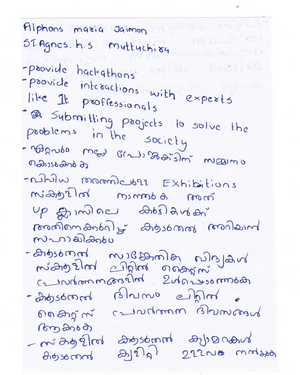 Alphons maria Jaimon
St Agnes. h.s muttuchira
- provide hackathons
- provide interactions with experts
like It proffessionals
- Submitting projects to solve the
problems in the society
- ഏറ്റവും നല്ല പ്രോജക്ടിന് സമ്മാനം
കൊടുക്കുക
- വിവിധ തരത്തിലുള്ള Exhibitions
സ്കൂളിൽ നടത്തുക അത്
up ക്ലാസിലെ കുട്ടികൾക്ക്
അതിനെക്കുറിച്ച് കൂടുതൽ അറിയാൻ
സഹായിക്കും
- കൂടുതൽ സാങ്കേതിക വിദ്യകൾ
സ്കൂളിൽ ലിറ്റിൽ കൈറ്റ്സ്
പ്രവർത്തനങ്ങളിൽ ഉൾപ്പെടുത്തുക
- കൂടുതൽ ദിവസം ലിറ്റിൽ
കൈറ്റ്സ് പ്രവർത്തന ദിവസങ്ങൾ
ആക്കുക
- സ്കൂളിൽ കൂടുതൽ ക്യാമറകൾ
കൂടുതൽ ക്വാളിറ്റി ഉള്ളവ നൽകുക